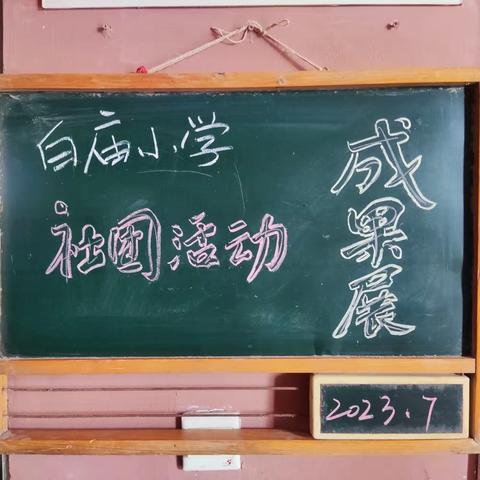 白庙小学
社团活动
成果展
2023.7